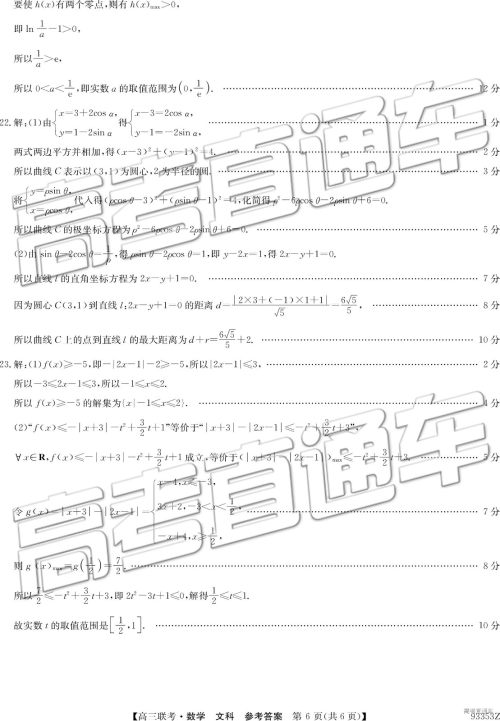 要使 h(x)有两个零点,则有 h(x)max>0,
即 ln 1/a −1>0,
所以 1/a >e,
所以 0<a< 1/e ,即实数 a 的取值范围为(0, 1/e ). …… 12 分
22.解:(1)由{x=3+2cos α, y=1−2sin α 得{x−3=2cos α, y−1=−2sin α, …… 1 分
两式两边平方并相加,得(x−3)²+(y−1)²=4. …… 2 分
所以曲线 C 表示以(3,1)为圆心,2 为半径的圆. …… 3 分
将{y=ρsin θ, x=ρcos θ, 代入得(ρcos θ−3)²+(ρsin θ−1)²=4,化简得 ρ²−6ρcos θ−2ρsin θ+6=0.
所以曲线 C 的极坐标方程为 ρ²−6ρcos θ−2ρsin θ+6=0. …… 5 分
(2)由 sin θ−2cos θ= 1/ρ ,得 ρsin θ−2ρcos θ=1,即 y−2x=1,得 2x−y+1=0.
所以直线 l 的直角坐标方程为 2x−y+1=0. …… 7 分
因为圆心 C(3,1)到直线 l:2x−y+1=0 的距离 d= |2×3+(−1)×1+1|/√5 = 6√5/5 , …… 8 分
所以曲线 C 上的点到直线 l 的最大距离为 d+r= 6√5/5 +2. …… 10 分
23.解:(1)f(x)≥−5,即−|2x−1|−2≥−5,所以|2x−1|≤3, …… 2 分
所以−3≤2x−1≤3,所以−1≤x≤2.
所以 f(x)≥−5 的解集为{x|−1≤x≤2}. …… 4 分
(2)“f(x)≤−|x+3|−t²+ 3/2 t+1”等价于“|x+3|−|2x−1|≤−t²+ 3/2 t+3”,
∀x∈R,f(x)≤−|x+3|−t²+ 3/2 t+1 成立,等价于(|x+3|−|2x−1|)max≤−t²+ 3/2 t+3, …… 5 分
令 g(x)=|x+3|−|2x−1|={x−4,x≤−3, 3x+2,−3<x< 1/2 , −x+4,x≥ 1/2 , …… 7 分
则 g(x)max=g( 1/2 )= 7/2 . …… 8 分
所以 7/2 ≤−t²+ 3/2 t+3,即 2t²−3t+1≤0,解得 1/2 ≤t≤1.
故实数 t 的取值范围是[ 1/2 ,1]. …… 10 分
【高三联考·数学 文科 参考答案 第 6 页(共 6 页)】
93353Z
高考直通车
高考直通车